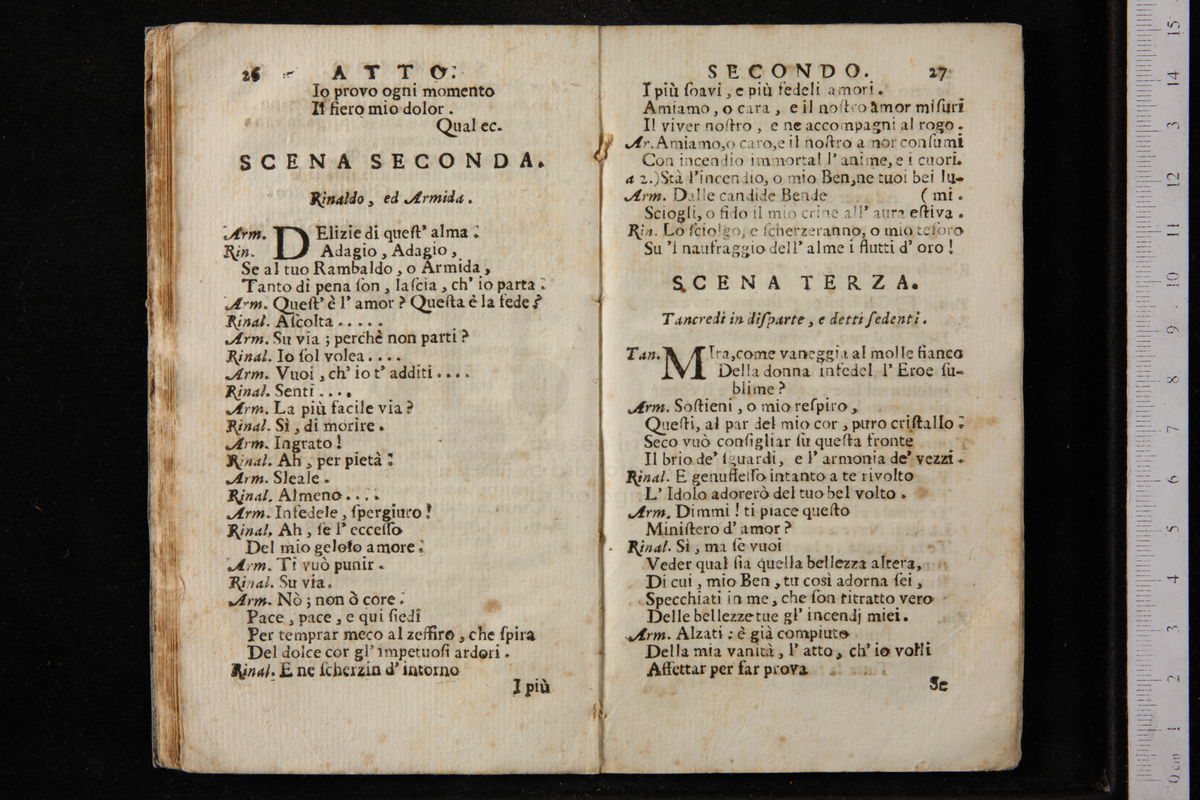 26 ATTO.
Io provo ogni momento
Il fiero mio dolor.
Qual ec.
SCENA SECONDA.
Rinaldo, ed Armida.
Arm. DElizie di queſt' alma.
Rin. Adagio, Adagio,
Se al tuo Rambaldo, o Armida,
Tanto di pena ſon, laſcia, ch' io parta.
Arm. Queſt' è l' amor? Queſta è la fede?
Rinal. Aſcolta.....
Arm. Su via; perchè non parti?
Rinal. Io ſol volea....
Arm. Vuoi, ch' io t' additi....
Rinal. Senti....
Arm. La più facile via?
Rinal. Sì, di morire.
Arm. Ingrato!
Rinal. Ah, per pietà!
Arm. Sleale.
Rinal. Almeno....
Arm. Infedele, ſpergiuro!
Rinal. Ah, ſe l' ecceſſo
Del mio geloſo amore.
Arm. Ti vuò punir.
Rinal. Su via.
Arm. Nò; non ò core.
Pace, pace, e qui ſiedi
Per temprar meco al zeffiro, che ſpira
Del dolce cor gl' impetuoſi ardori.
Rinal. E ne ſcherzin d' intorno
I più
SECONDO. 27
I più ſoavi, e più fedeli amori.
Amiamo, o cara, e il noſtro amor miſuri
Il viver noſtro, e ne accompagni al rogo.
Ar. Amiamo,o caro,e il noſtro amor conſumi
Con incendio immortal l' anime, e i cuori.
a 2.) Stà l'incendio, o mio Ben,ne tuoi bei lu-
Arm. Dalle candide Bende ( mi.
Sciogli, o fido il mio crine all' aura eſtiva.
Rin. Lo ſciolgo, e ſcherzeranno, o mio teſoro
Su 'l naufraggio dell' alme i flutti d' oro!
SCENA TERZA.
Tancredi in diſparte, e detti ſedenti.
Tan. MIra,come vaneggia al molle fianco
Della donna infedel l' Eroe ſu-
blime?
Arm. Soſtieni, o mio reſpiro,
Queſti, al par del mio cor, puro criſtallo:
Seco vuò conſigliar ſù queſta fronte
Il brio de' ſguardi, e l' armonia de' vezzi.
Rinal. E genufleſſo intanto a te rivolto
L' Idolo adorerò del tuo bel volto.
Arm. Dimmi! ti piace queſto
Miniſtero d' amor?
Rinal. Sì, ma ſe vuoi
Veder qual ſia quella bellezza altera,
Di cui, mio Ben, tu così adorna ſei,
Specchiati in me, che ſon ritratto vero
Delle bellezze tue gl' incendj miei.
Arm. Alzati: è già compiuto
Della mia vanità, l' atto, ch' io volli
Affettar per far prova
Se